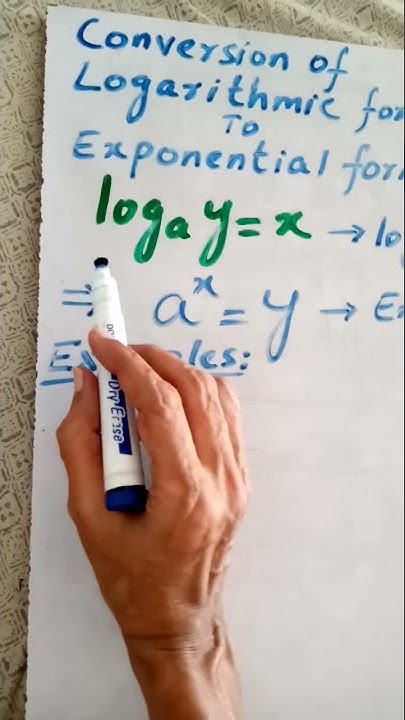 Conversion of
Logarithmic for
To
Exponential for
logₐ y = x → lo
⇒ aˣ = y → E
Examples:
Dry Erase